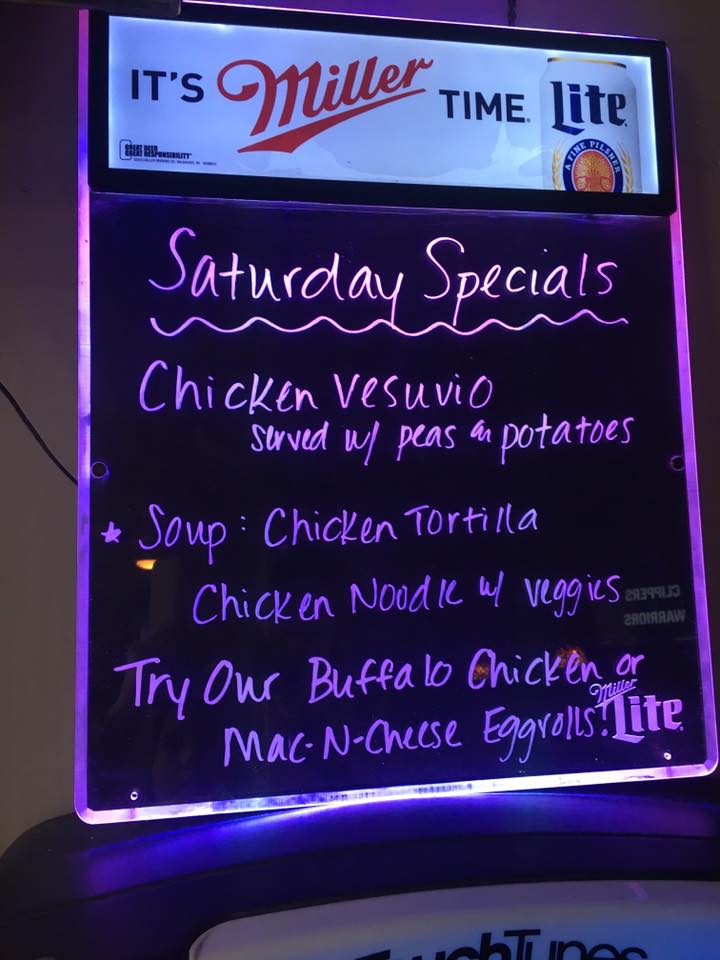 IT'S Miller TIME.
Lite
A FINE PILSNER
GREAT BEER
GREAT RESPONSIBILITY
Saturday Specials
Chicken Vesuvio
served w/ peas an potatoes
* Soup: Chicken Tortilla
Chicken Noodle w/ veggies
CLIPPERS
WARRIORS
Try Our Buffalo Chicken or
Mac-N-Cheese Eggrolls!
Miller
Lite
TouchTunes